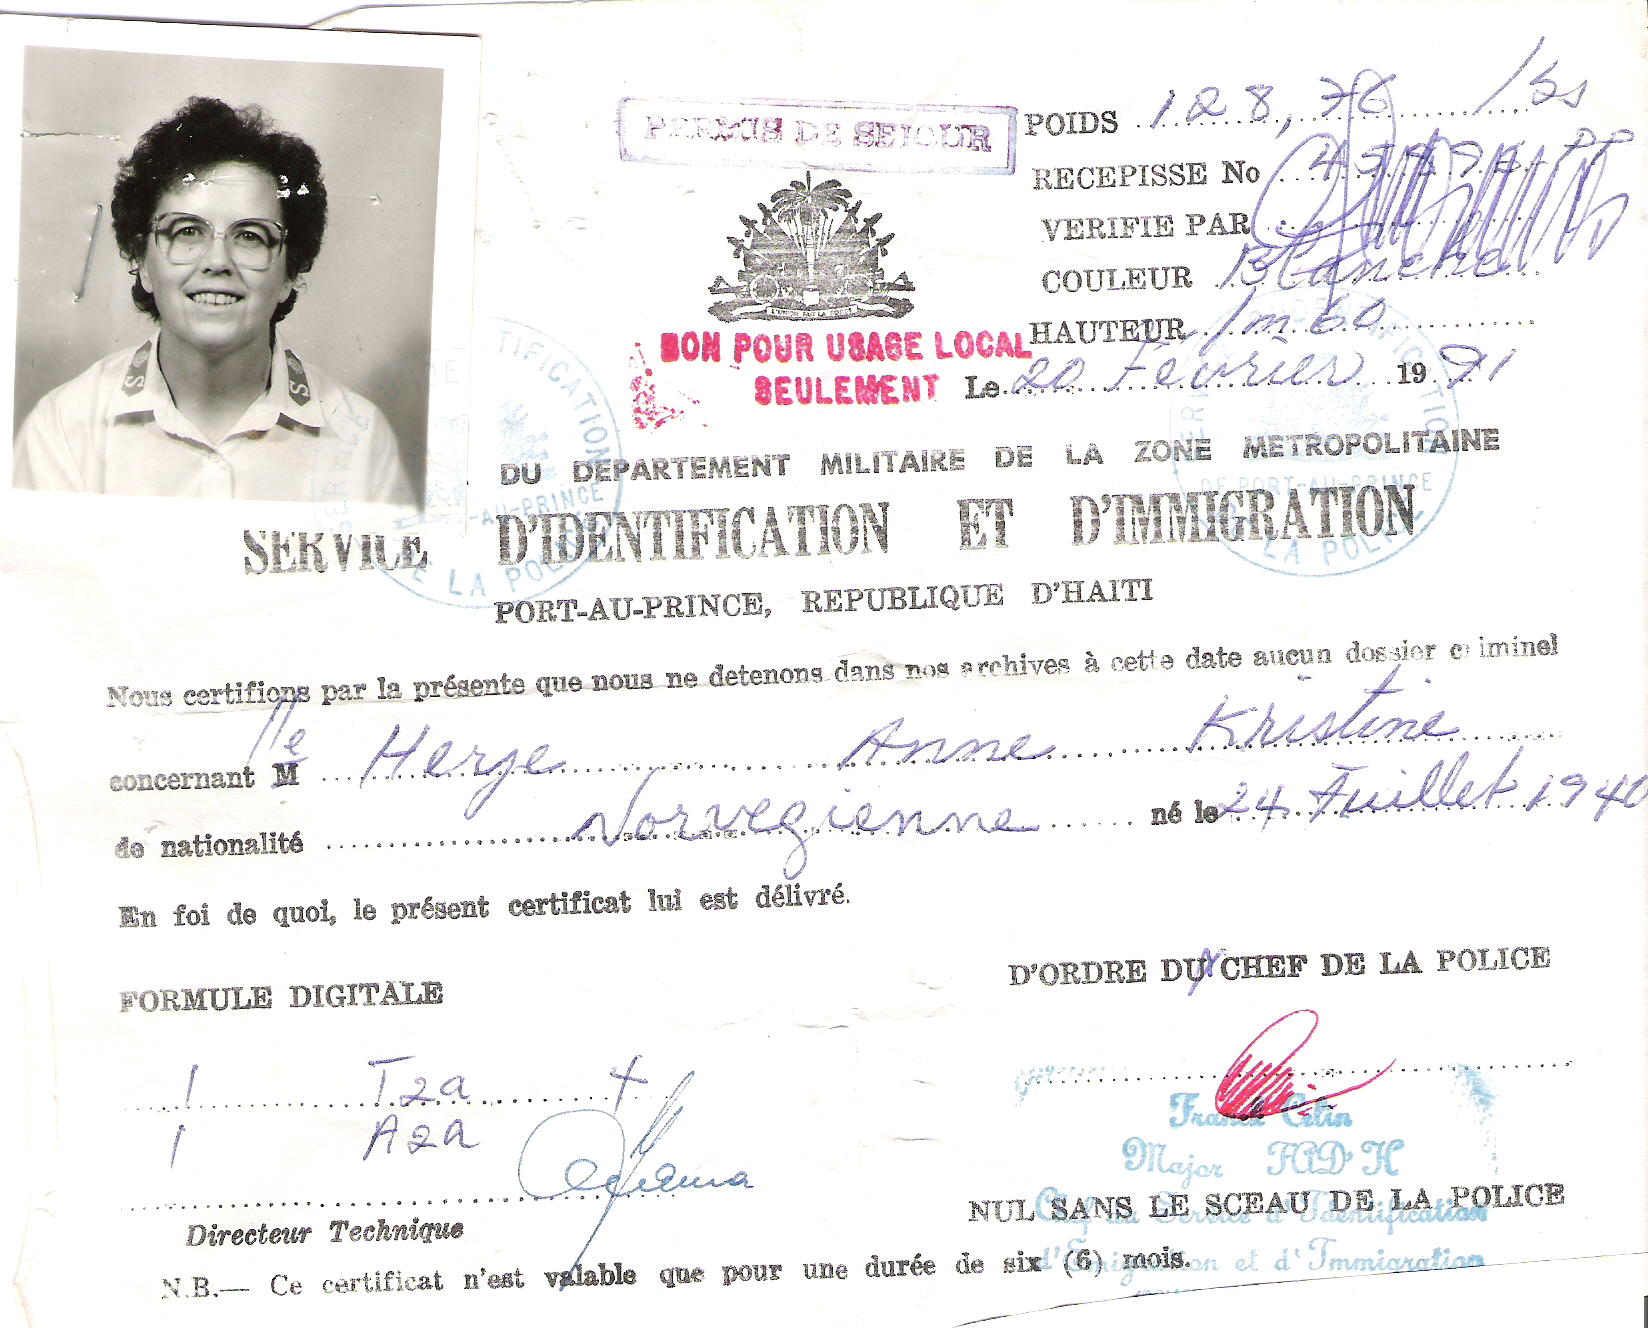 PERMIS DE SEJOUR
POIDS 128,76 lbs
RECEPISSE No
VERIFIE PAR
COULEUR Blanche
HAUTEUR 1m 60
L'UNION FAIT LA FORCE
BON POUR USAGE LOCAL
SEULEMENT
Le 20 Fevrier 1991
DU DEPARTEMENT MILITAIRE DE LA ZONE METROPOLITAINE
SERVICE D'IDENTIFICATION ET D'IMMIGRATION
PORT-AU-PRINCE, REPUBLIQUE D'HAITI
Nous certifions par la présente que nous ne detenons dans nos archives à cette date aucun dossier criminel
concernant Mlle Herje Anne Kristine
de nationalité Norvegienne né le 24 Juillet 1940
En foi de quoi, le présent certificat lui est délivré.
D'ORDRE DU CHEF DE LA POLICE
FORMULE DIGITALE
1 T2a 4
1 A2a
Franck Célin
Major FAD'H
Chef du Service d'Identification
d'Emigration et d'Immigration
NUL SANS LE SCEAU DE LA POLICE
Directeur Technique
N.B.— Ce certificat n'est valable que pour une durée de six (6) mois.